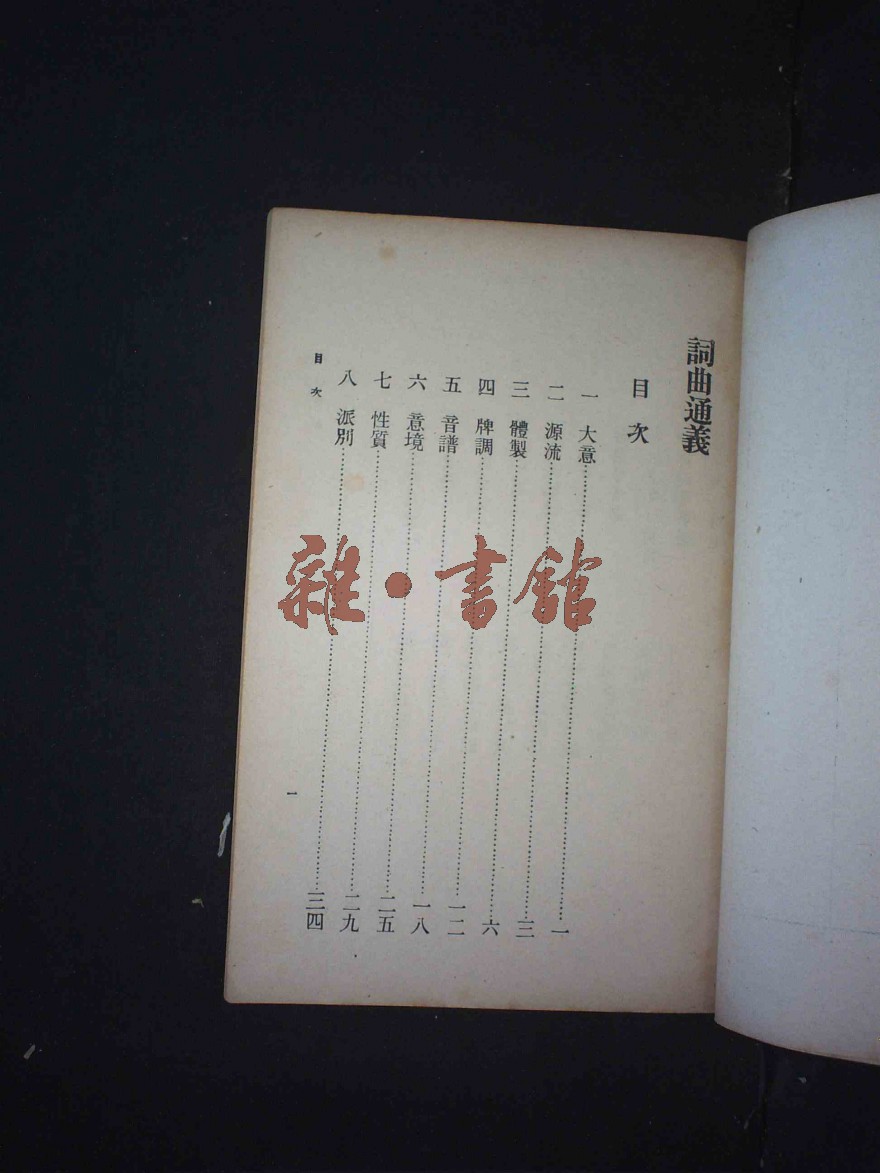 詞曲通義
目次
一 大意……一
二 源流……三
三 體製……六
四 牌調……一二
五 音譜……一八
六 意境……二五
七 性質……二九
八 派別……三四
目次
一
雜·書館